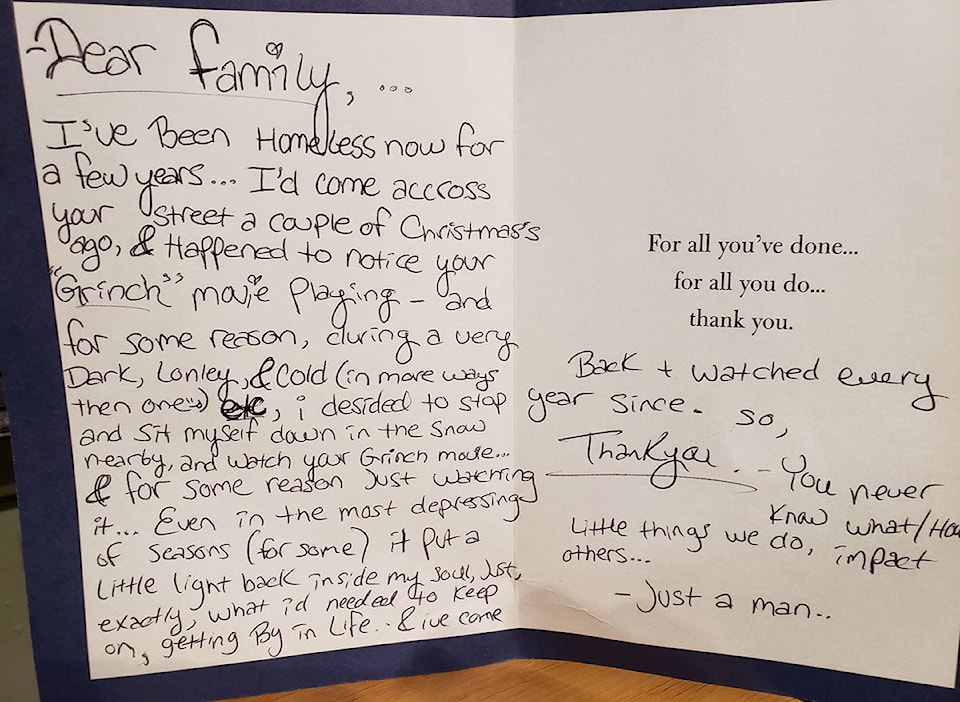 -Dear family, ...
I've Been Homeless now for
a few years... I'd come accross
your street a couple of Christmas's
ago, & Happened to notice your
"Grinch" movie Playing - and
for some reason, during a very
Dark, Lonley, & Cold (in more ways
then one →) etc, i desided to stop
and sit myself down in the snow
nearby, and watch your Grinch movie...
& for some reason Just watching
it... Even in the most depressing
of seasons (for some) it put a
little light back inside my soul, Jst,
exactly, what i'd needed to keep
on, getting By in Life.. & ive come
For all you've done...
for all you do...
thank you.
Back + watched every
year since. so,
Thankyou. - You never
know what/How
Little things we do, impact
others...
- Just a man..